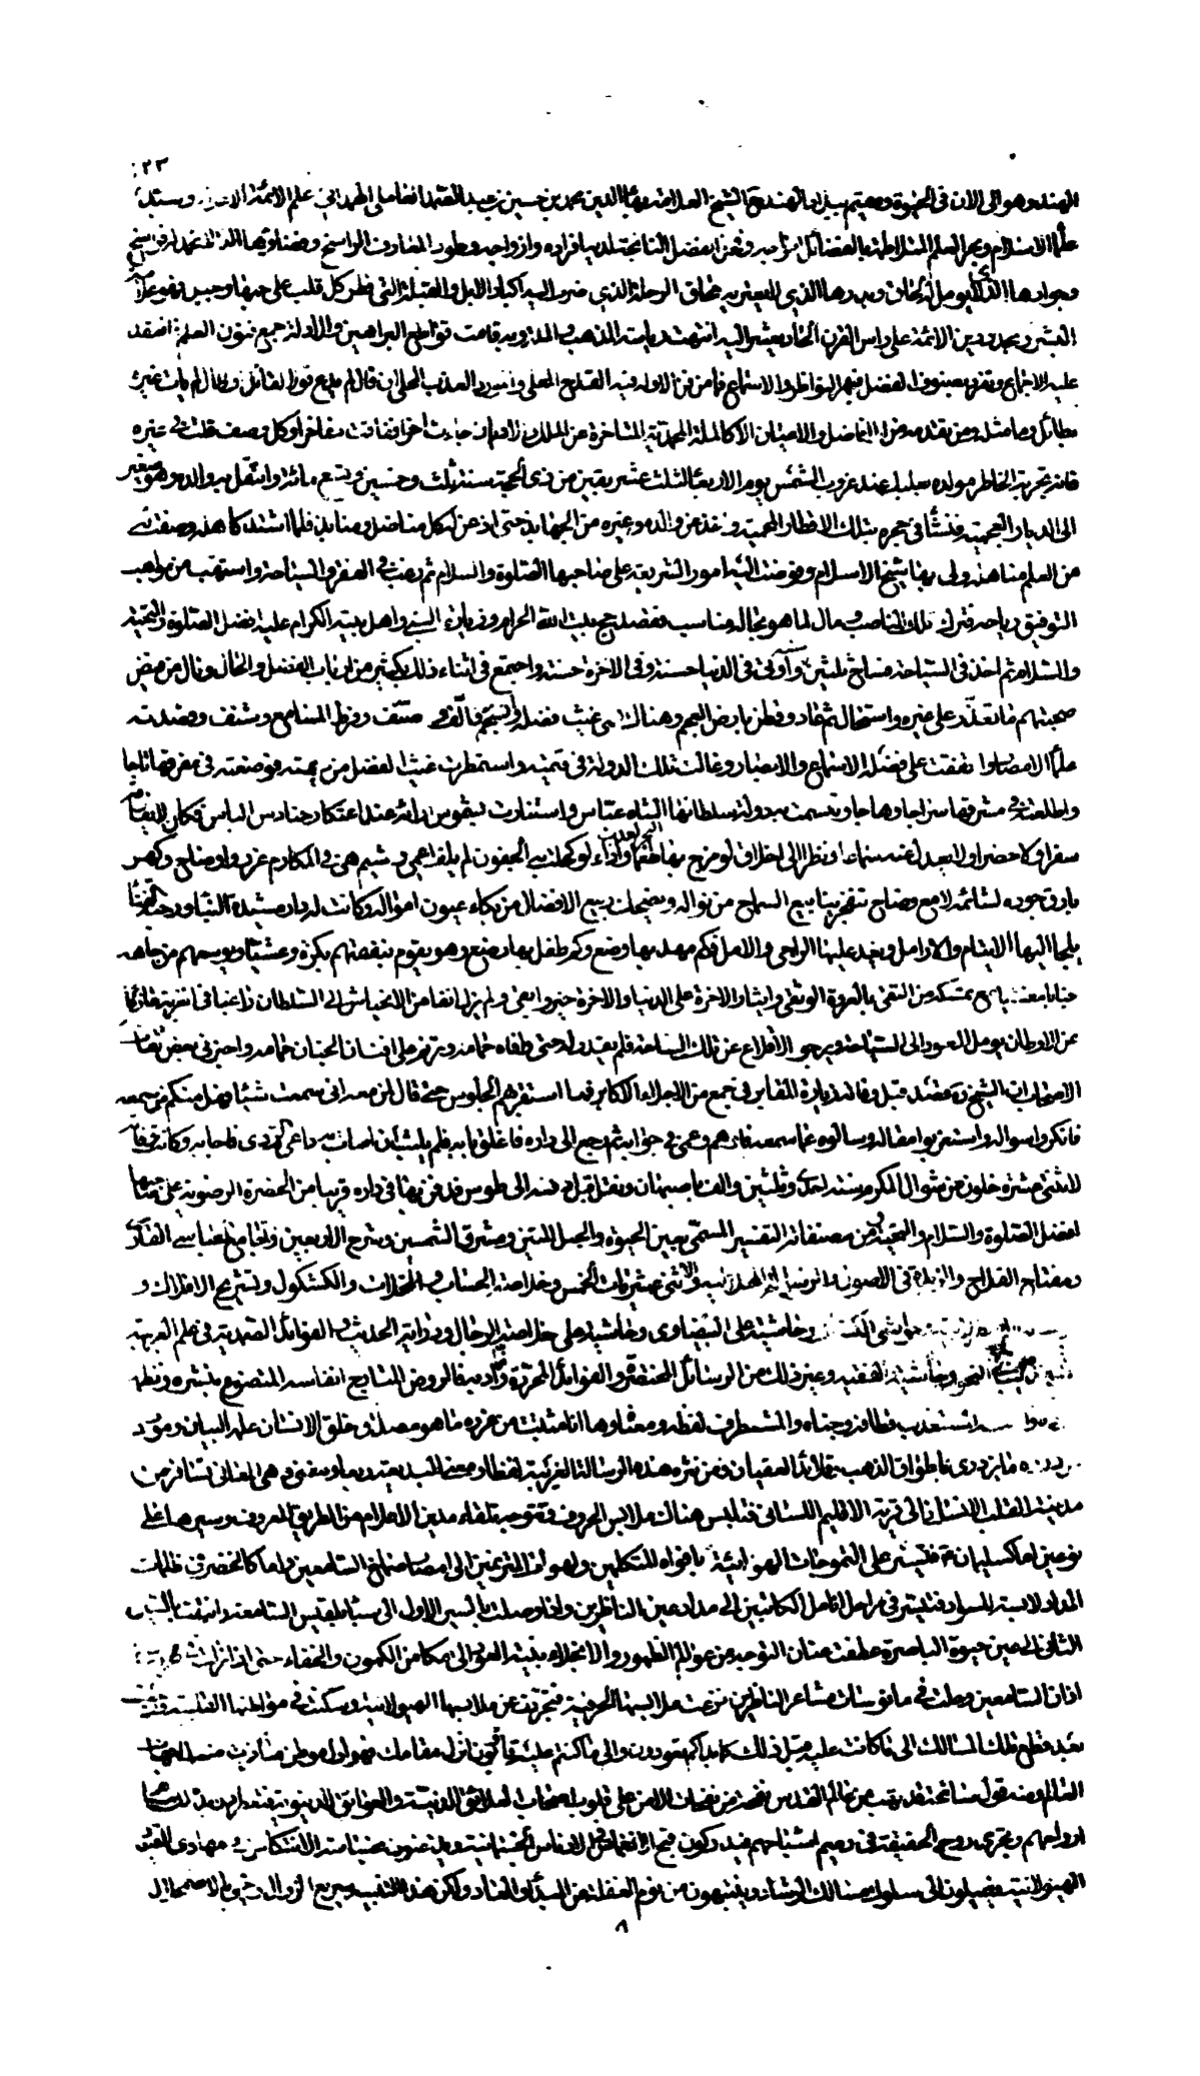 ٢٣
الهند وهو الى الان فى الحيوة ومقيم بديار الهند ح الشيخ العلامة بهاء الدين محمد بن حسين بن عبد الصمد العاملى الهمدانى علم الائمة الاعلام وسيد
علماء الاسلام وبحر العلم المتلاطمة بالفضائل امواجه وفحل الفضل الناتجة لديه افراده وازواجه وطود المعارف الراسخ وفضاؤها الذى لا تحد له فراسخ
وجوادها الذى لا يؤمل له لحاق وبدرها الذى لا يعتريه محاق الرحلة الذى ضربت اليه اكباد الابل والقبلة التى فطر كل قلب على حبها وجبل فهو علامة
البشر ومجدد دين الائمة على راس القرن الحادى عشر اليه انتهت رياسة المذهب والملة وبه قامت قواطع البراهين والادلة جمع فنون العلم انعقد
عليه الاجماع وتفرد بصنوف الفضل فبهر النواظر والاسماع فما من فن الا وله فيه القدح المعلى والمورد العذب المحلى ان قال لم يدع قولا لقائل او طال لم يأت غيره
بطائل وما مثله ومن تقدمه من الافاضل والاعيان الا كالملة المحمدية المتأخرة عن الملل والاديان جاءت اخرا ففاقت مفاخرا وكل وصف قلت فى غيره
فانه تجربة الخاطر مولده بعلبك عند غروب الشمس يوم الاربعاء لثلث عشر بقين من ذى الحجة سنة ثلث وخمسين وتسع مائة وانتقل به والده وهو صغير
الى الديار العجمية فنشأ فى حجره بتلك الاقطار المحمية واخذ عن والده وغيره من الجهابذ حتى اذعن له كل مناضل ومنابذ فلما اشتد كاهله وصفت له
من العلم مناهله ولى بها شيخ الاسلام وفوضت اليه امور الشريعة على صاحبها الصلوة والسلام ثم رغب فى الفقر والسياحة واستهب من مواهب
التوفيق رياحه فترك تلك المناصب ومال لما هو بحاله مناسب فقصد حج بيت الله الحرام وزيارة النبى واهل بيته الكرام عليه افضل الصلوة والتحية
والسلام ثم اخذ فى السياحة فساح ثلثين سنة واوتى فى الدنيا حسنة وفى الاخرة حسنة واجتمع فى اثناء ذلك بكثير من ارباب الفضل والحال ونال من فيض
صحبتهم ما تعذر على غيره واستحال ثم عاد وقطن بارض العجم وهناك همى غيث فضله وانسجم فالف وصنف وقرط المسامع وشنف وقصدته
علماء الامصار واتفقت على فضله الاسماع والابصار وغالت تلك الدولة فى قيمته واستمطرت غيث الفضل من ديمته فوضعته فى مفرقها تاجا
واطلعته فى مشرقها سراجا وهاجا وتبسمت به دولة سلطانها الشاه عباس واستنارت بشموس رائه عند اعتكار حنادس الباس فكان لا يفارقه
سفرا ولا حضرا ولا يعدل عنه سماعا ونظرا الى اخلاق لو مزج بها البحر لعذب طعما واراء لو كحلت بها الجفون لم يلف اعمى وشيم هى فى المكارم غرر واوضاح وكرم
بارق جوده لشائمه لامع وضاح تتفجر ينابيع السماح من نواله ويضحك ربيع الافضال من بكاء عيون امواله وكانت له دار مشيدة البناء رحبة الفناء
يلجأ اليها الايتام والارامل ويغد عليها الراجى والامل فكم مهد بها وضع وكم طفل بها رضع وهو يقوم بنفقتهم بكرة وعشيا ويوسعهم من جاهه
جنابا مغشيا مع تمسكه من التقى بالعروة الوثقى وايثار الاخرة على الدنيا والاخرة خير وابقى ولم يزل انفا من الانحياش الى السلطان راغبا فى الغربة عازفا
عن الاوطان يؤمل العود الى السياحة ويرجو الاقلاع عن تلك الساحة فلم يقدر له حتى وافاه حمامه وترنم على افنان الجنان حمامه واخبرنى بعض ثقات
الاصحاب ان الشيخ ره قصد قبل وفاته زيارة المقابر فى جمع من الاجلاء الاكابر فما استقر بهم الجلوس حتى قال لمن معه انى سمعت شيئا فهل منكم من سمعه
فانكروا سؤاله واستغربوا مقاله وسالوه عما سمعه فاوهم وعمى فى جوابه ثم رجع الى داره فاغلق بابه فلم يلبث ان اصاب به داعى الردى فاجابه وكانت وفاته
لاثنتى عشرة خلون من شوال المكرم سنة احدى وثلثين والف باصبهان ونقل قبل دفنه الى طوس فدفن بها فى داره قريبا من الحضرة الرضوية على صاحبها
افضل الصلوة والسلام والتحية ومن مصنفاته التفسير المسمى بعين الحيوة والحبل المتين ومشرق الشمسين وشرح الاربعين والجامع العباسى الفارسى
ومفتاح الفلاح والزبدة فى الاصول والرسالة الهلالية والاثنى عشريات الخمس وخلاصة الحساب والمخلاة والكشكول وتشريح الافلاك و
حواشى الكشاف وحاشية على البيضاوى وحاشية على خلاصة الرجال ودراية الحديث والفوائد الصمدية فى علم العربية
النحو وحاشية الفقيه وغير ذلك من الرسائل المختصرة والفوائد المحررة واما ادبه فالروض المتارج انفاسه المتضوع بنثره ونظمه
المستعذب قطافه وجناه والمستطرف لفظه ومعناه وها انا مثبت من غرره ما هو مصداق خلق الانسان علمه البيان ومورد
ما يزدرى باطواق الذهب وقلائد العقيان فمن نثره هذه الرسالة الغريبة لفظا ومعنى البديعة ربعا ومغنى وهى المعانى تسافر من
مدينة القلب الانسانى الى قرية الاقليم اللسانى فتلبس هناك ملابس الحروف وتتوجه تلقاء مدين الاعلام من الطريق المعروف وسيرها على
نوعين اما كسليمان ع فتسير على التموجات الهوائية بافواه المتكلمين ولهوات المترنمين الى امصار صماخ السامعين واما كالخضر فى ظلمات
المداد لابسة للسواد فتسير فى مراحل انامل الكاتبين الى مداد عين الناظرين واذا وصلت بالسير الاول الى سبا بلقيس السامعة وانتهت بالسير
الثانى الى عين حيوة الباصرة عطفت عنان التوجه من عوالم الظهور والانجلاء بنية العود الى مكامن الكمون والخفاء حتى اذا نزلت
اذان السامعين وحلت فى مانوسات مشاعر الناظرين نزعت ملابسها الحرفية وتجردت عن ملابسها الهيولانية وسكنت فى مواطنها القلبية
بعد قطع تلك المسالك الى ما كانت عليه قبل ذلك كما بداكم تعودون والى ما كنتم عليه
العالم ومنه قول سانحة قد تهب من عالم القدس نفحة من نفحات الانس على قلوب اصحاب العلائق الدنية والعوائق الدنيوية فتعطر بذلك مشام
ارواحهم وتجرى روح الحقيقة فى رميم اشباحهم فيدركون قبح الانغماس فى الادناس الجسمانية ويذعنون بخساسة الانتكاس فى مهاوى القيود
الهيولانية فيميلون الى سلوك مسالك الرشاد وينتبهون من نوم الغفلة عن المبدأ والمعاد ولكن هذا التنبيه سريع الزوال وحى الاضمحلال
٨